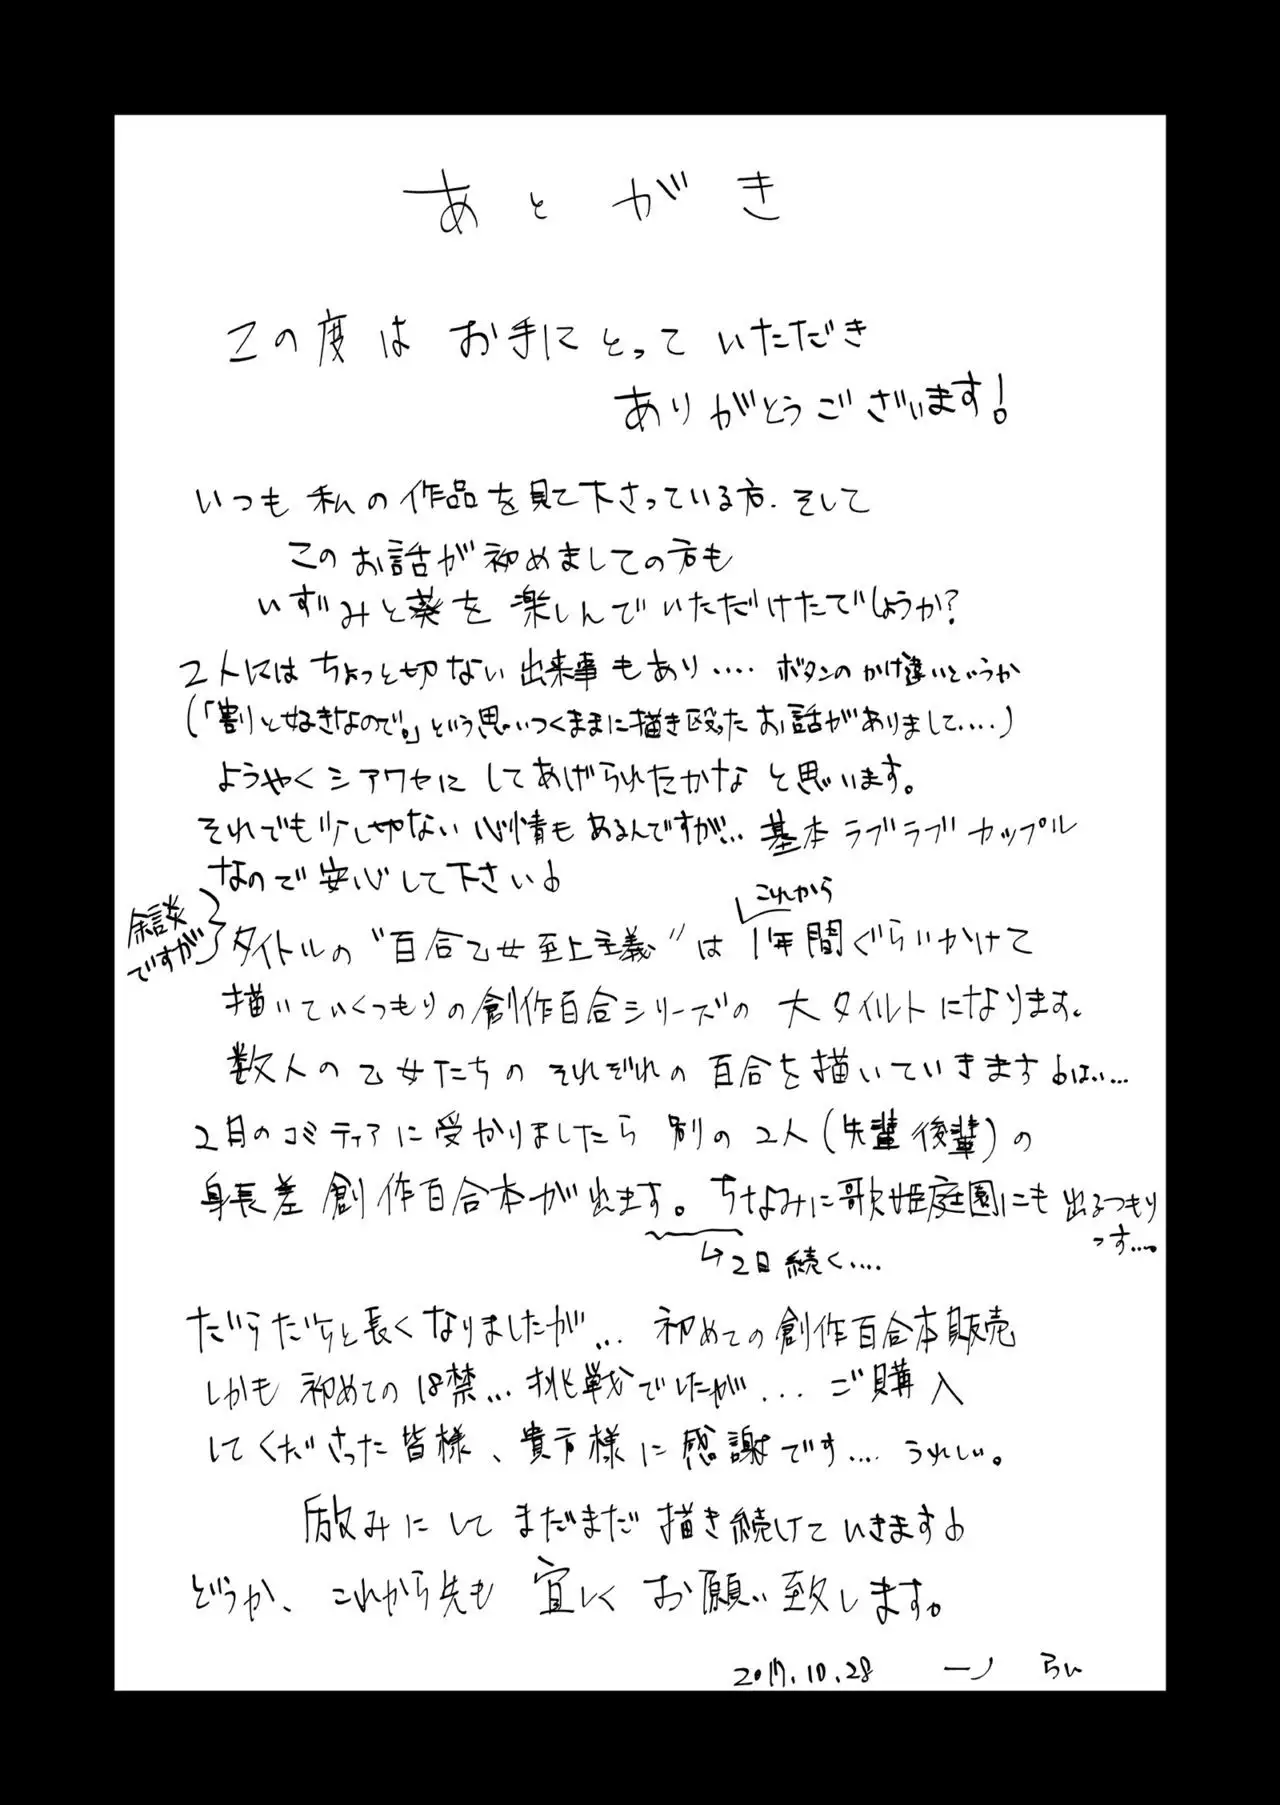 あとがき
この度は お手にとって いただき
ありがとうございます!
いつも 私の作品を見て下さっている方. そして
このお話が初めましての方も
いずみと葵を 楽しんでいただけたでしょうか?
2人には ちょっと切ない 出来事もあり.... ボタンのかけ違いというか
(「割と好きなので。」という思いつくままに描き殴ったお話がありまして....)
ようやくシアワセに してあげられたかな と思います。
それでも少し切ない心情も あるんですが... 基本ラブラブカップル
なので安心して下さい♪
余談
ですが
これから
タイトルの"百合乙女至上主義"は 1年間ぐらいかけて
描いていくつもりの創作百合シリーズの 大タイルトになります。
数人の乙女たちのそれぞれの 百合を描いていきます♪はい...
2月のコミティアに受かりましたら 別の2人(先輩後輩)の
身長差 創作百合本が出ます。 ちなみに歌姫庭園にも 出るつもり
っす....。
→2日続く....
だらだらと長くなりましたが... 初めての創作百合本販売
しかも 初めての18禁... 挑戦でしたが... ご購入
してくださった皆様、貴方様に感謝です.... うれしい。
励みにして まだまだ 描き続けていきます♪
どうか、これから先も 宜しく お願い致します。
2017.10.28 一ノ